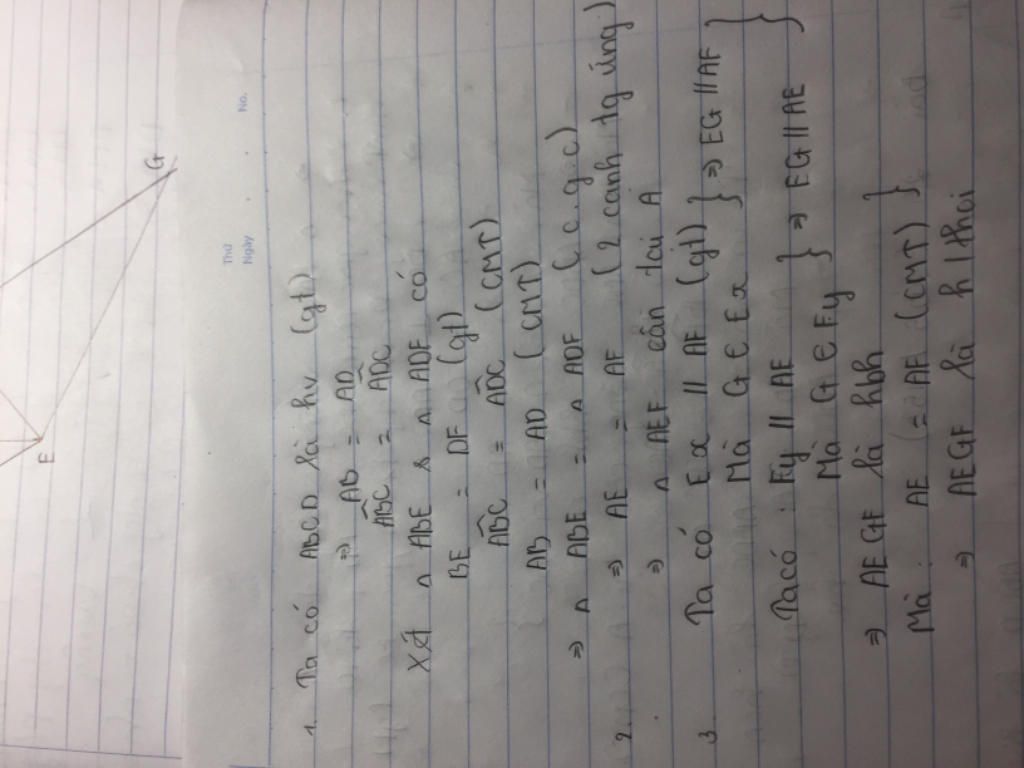 E
G
Thứ
Ngày
No.
1. Ta có ABCD là hv (gt)
⇒ AB = AD
ABC = ADC
Xét Δ ABE & Δ ADF có
BE = DF (gt)
ABC = ADC (CMT)
AB = AD (CMT)
⇒ Δ ABE = Δ ADF (c.g.c)
2 ⇒ AE = AF (2 cạnh tg ứng)
⇒ Δ AEF cân tại A
3 Ta có Ex // AF (gt) } ⇒ EG // AF }
Mà G ∈ Ex
Ta có : Fy // AE } ⇒ EG // AE
Mà G ∈ Fy
⇒ AEGF là hbh
Mà AE = AF (CMT) }
⇒ AEGF là h thoi